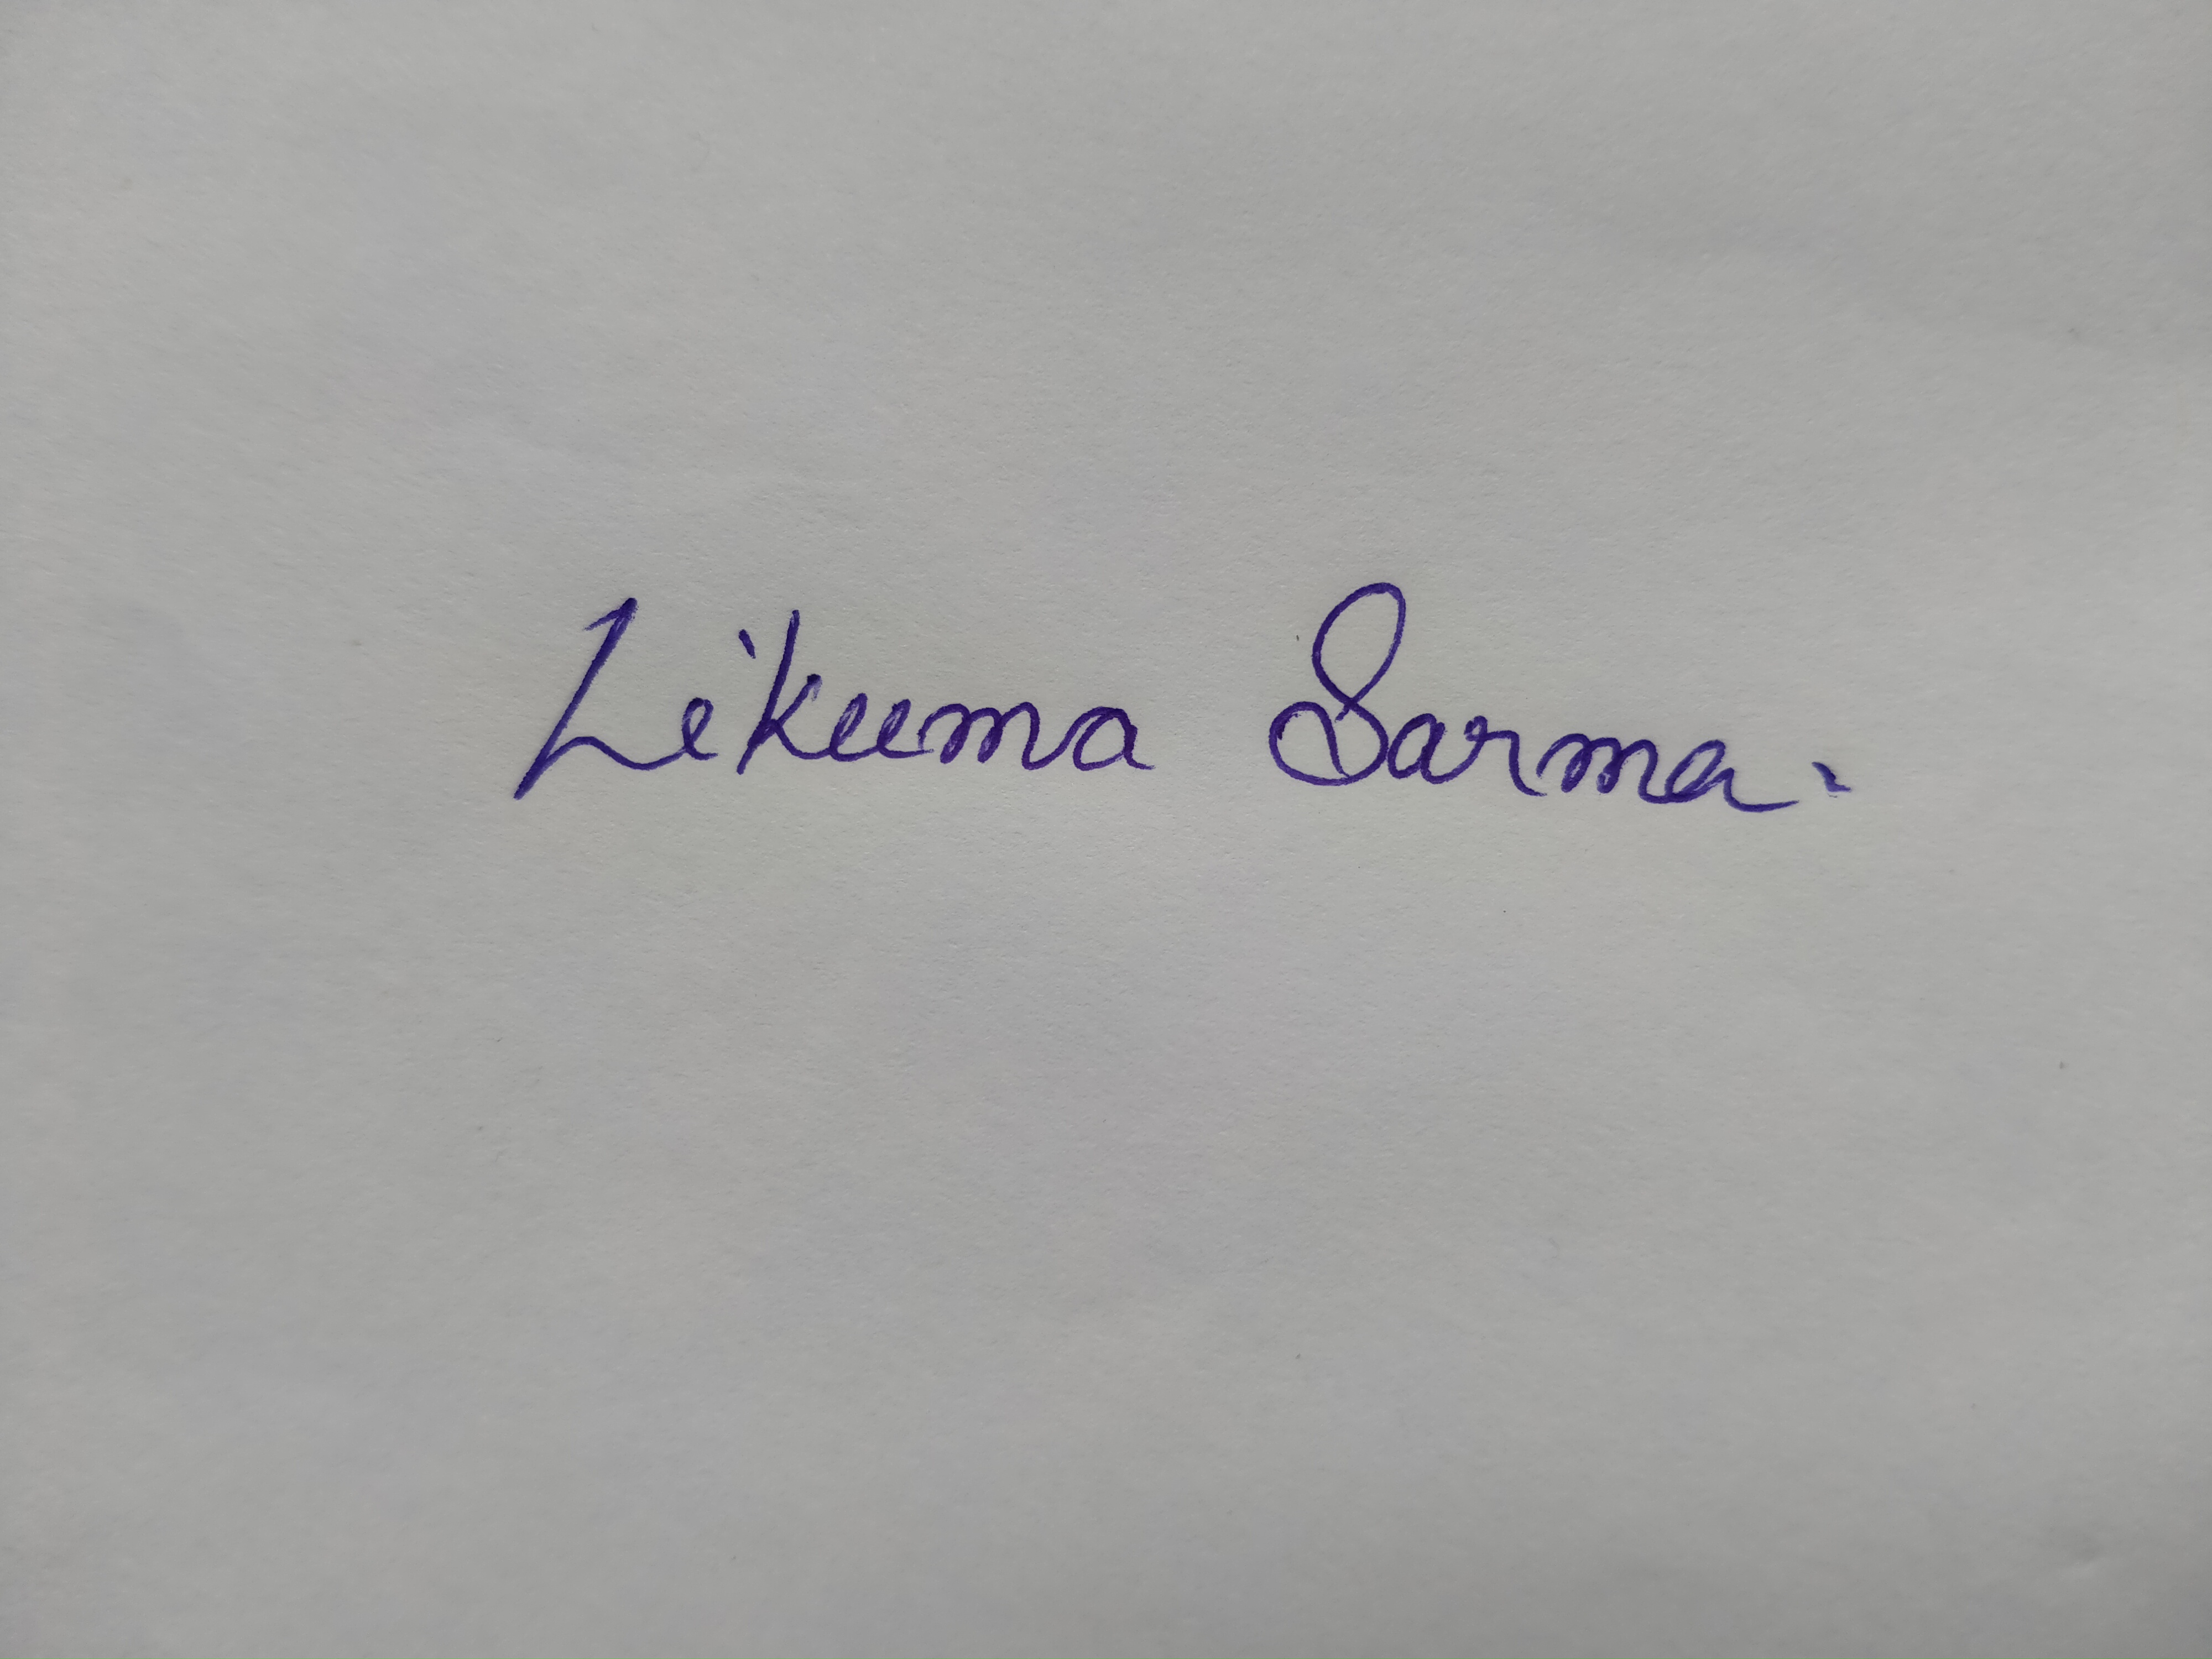 Likuma Sarma.